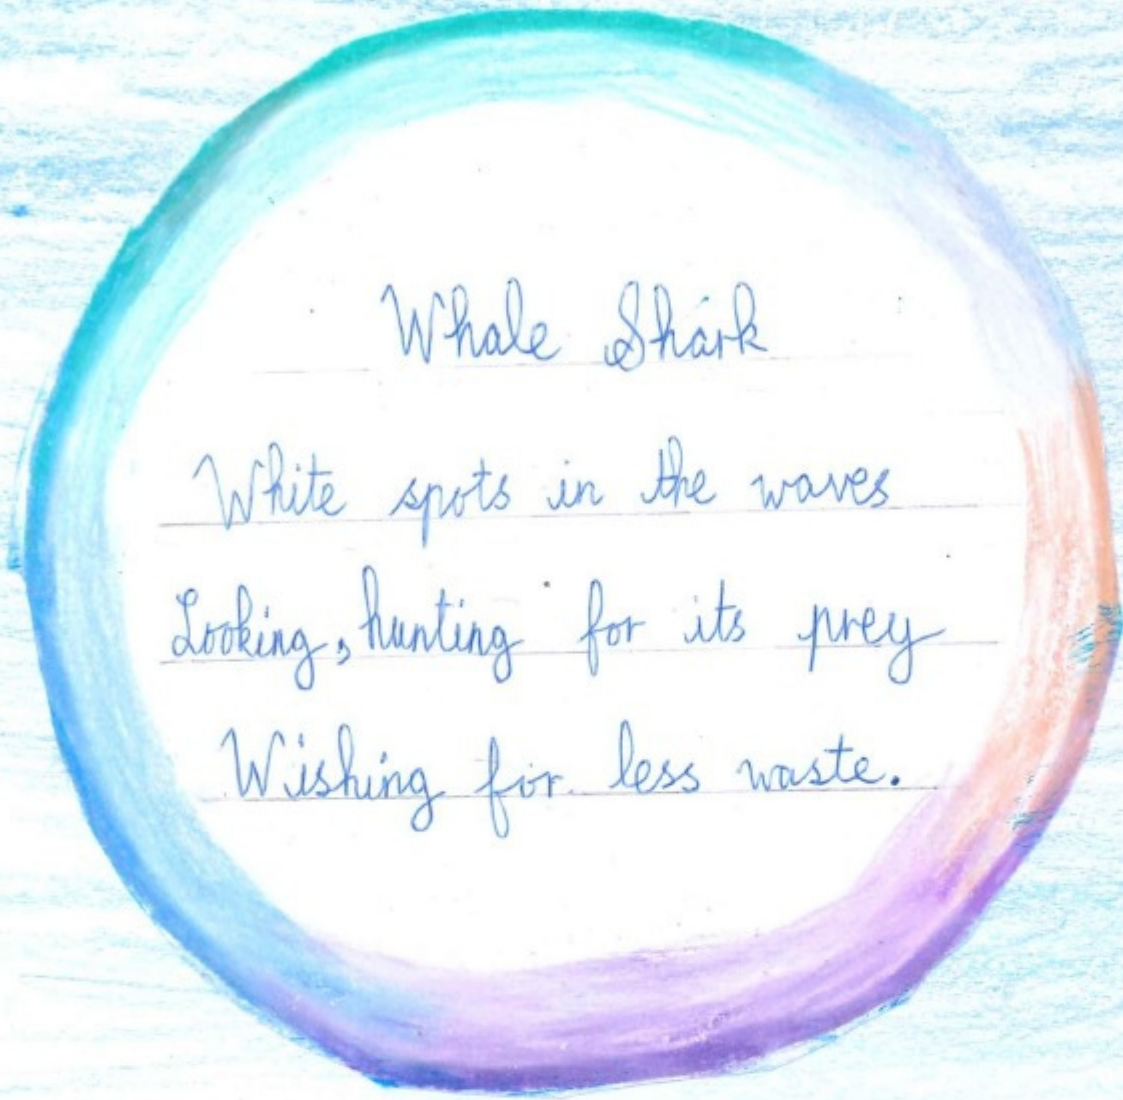 Whale Shark
White spots in the waves
Looking, hunting for its prey
Wishing for less waste.